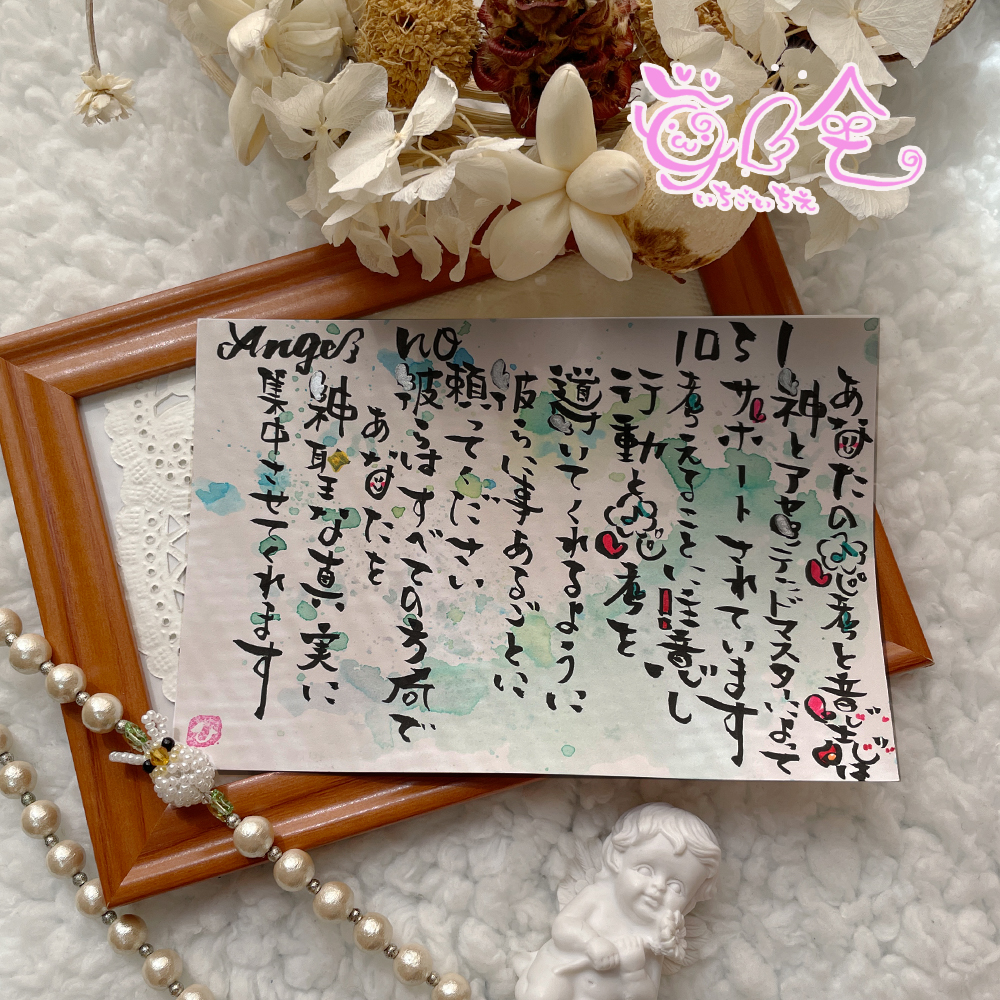 いちごいちえ
Angel no 1031
あなたの思考と意識は
神とアセンデッドマスターによって
サポートされています
考えることに注意し
行動と思考を
導いてくれるように
彼らに事あるごとに
頼ってください
彼らはすべての方向で
あなたを
神聖な真実に
集中させてくれます